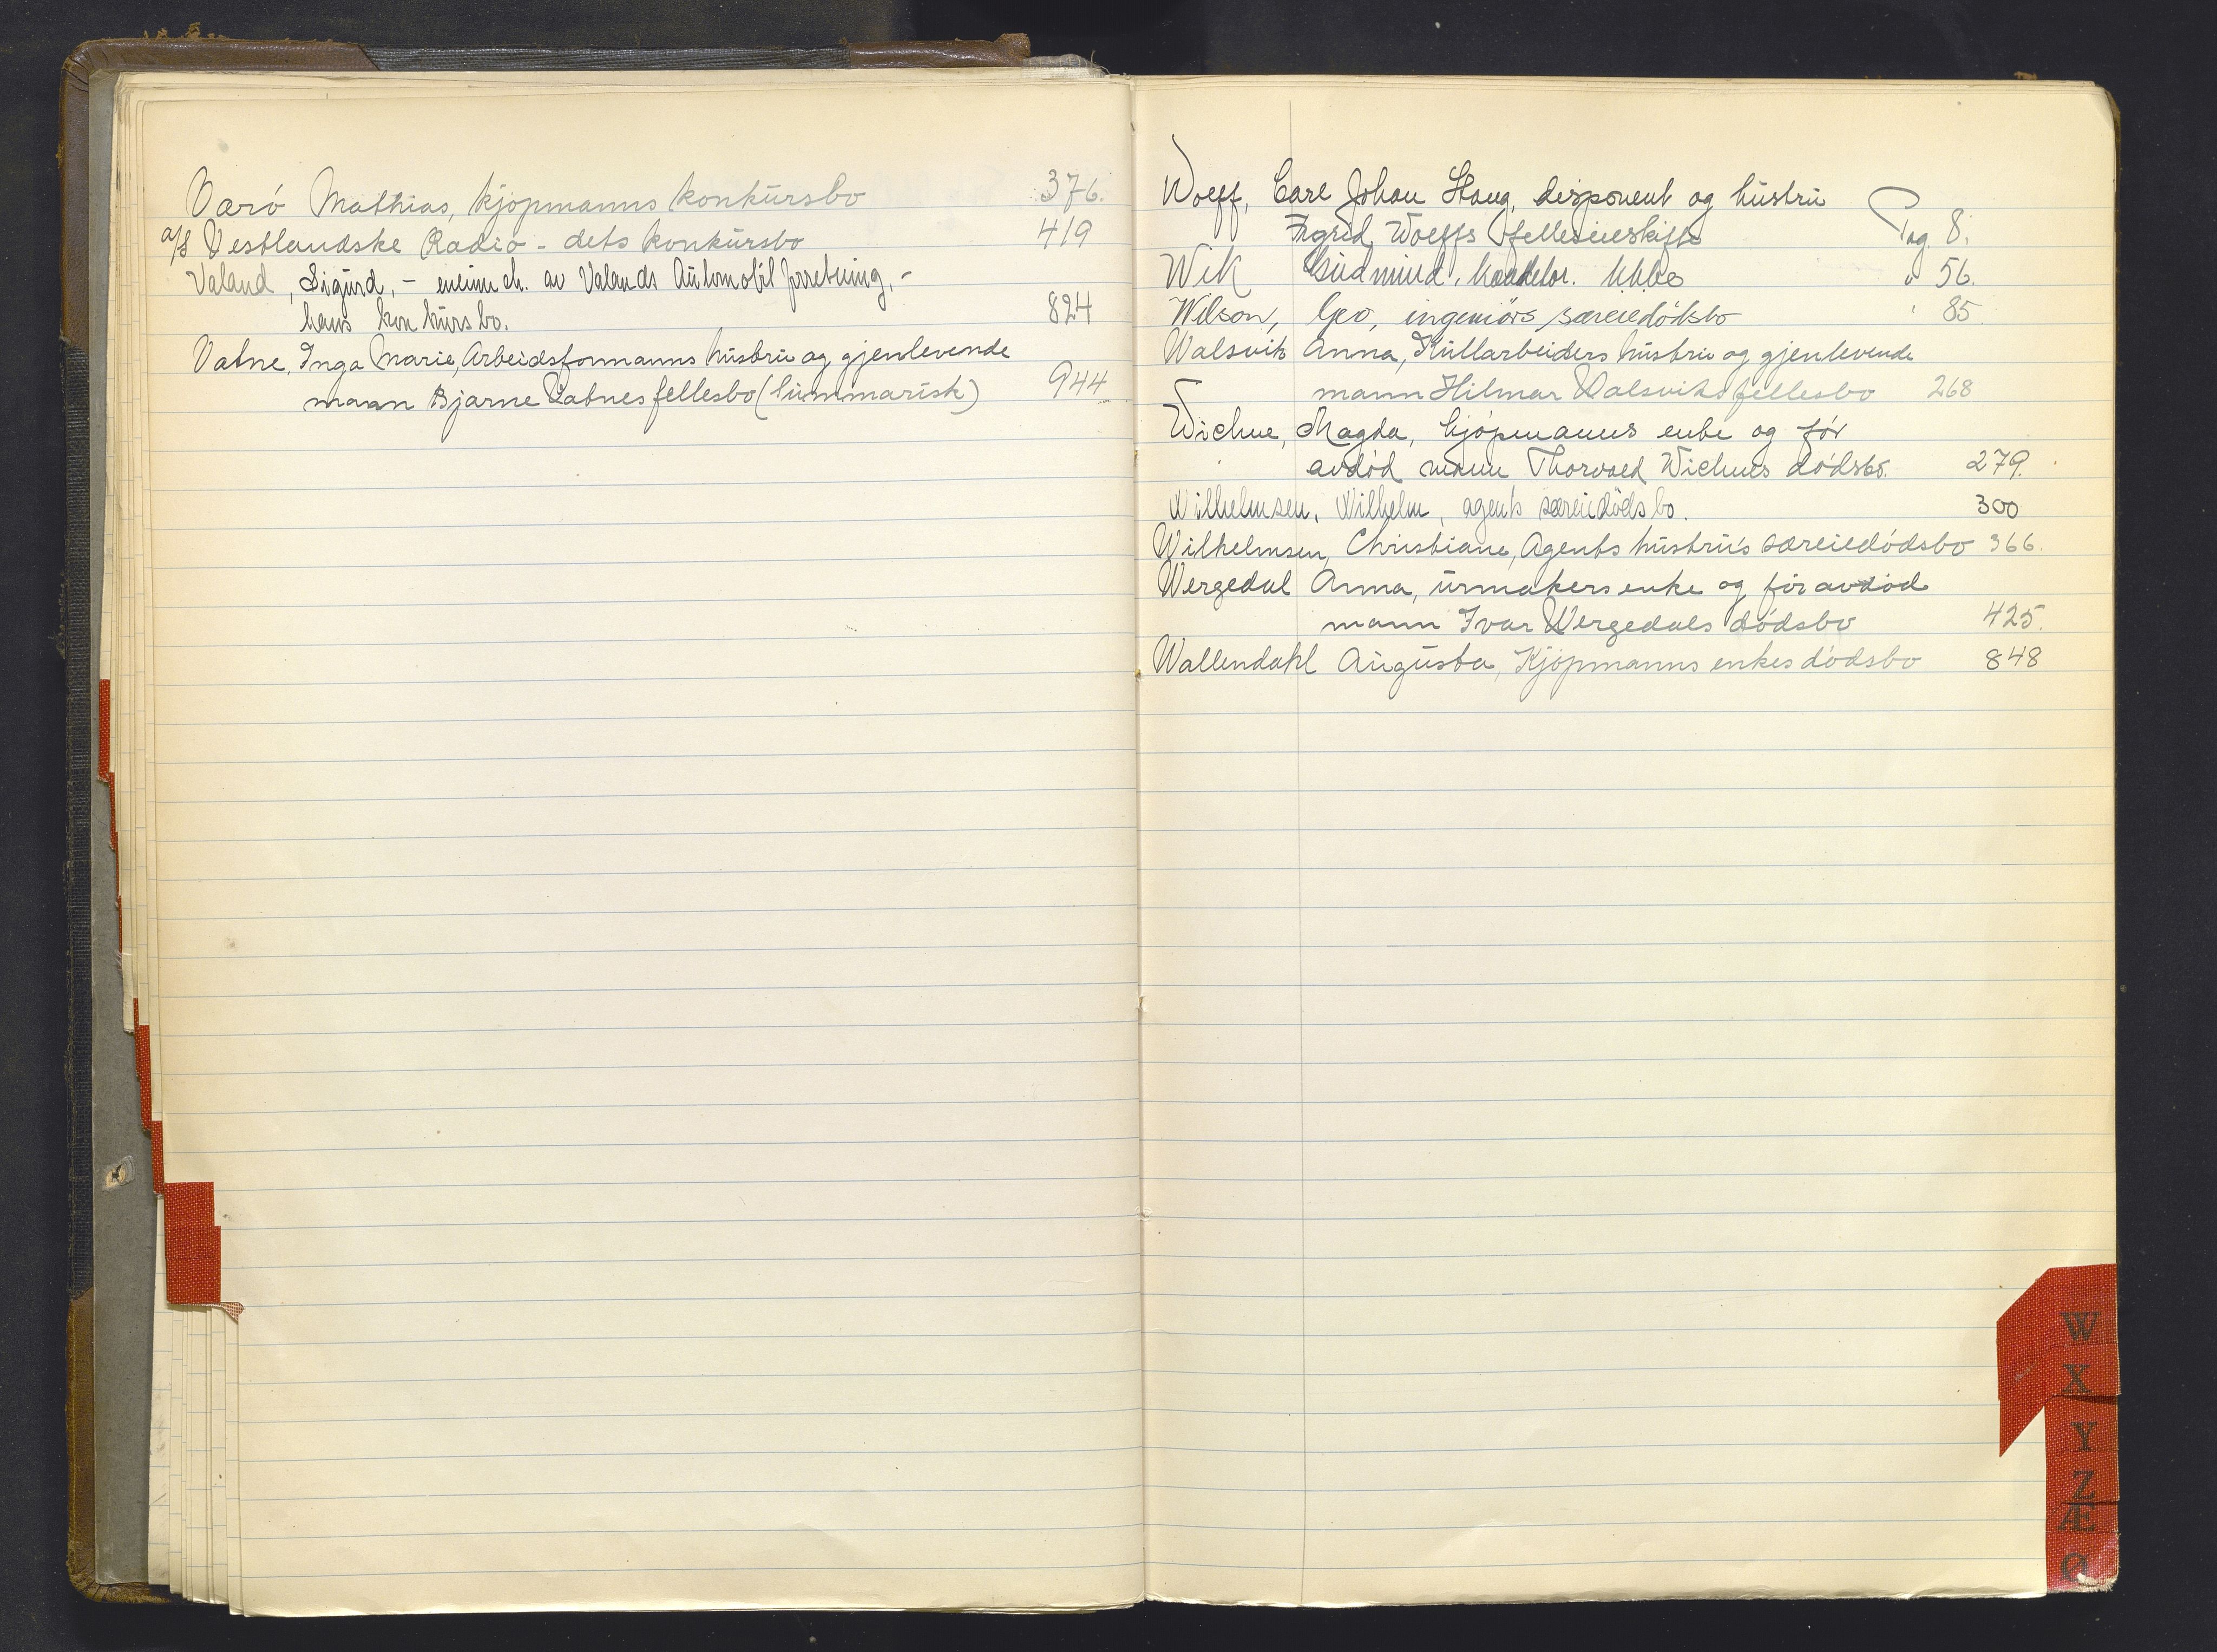 Varö Mathias, kjøpmanns konkursbo 376.
a/s Vestlandske Radio - dets konkursbo 419
Valand, Sigurd, - eneinneh. av Valands Automobilforretning, -
hans konkursbo. 824
Vatne, Inga Marie, Arbeidsformanns hustru og gjenlevende
mann Bjarne Vatnes fellesbo (summarisk) 944
Wolff, Carl Johan Haug, disponent og hustru
Ingrid Wolffs felleseieskifte Pag. 8.
Wik Gudmund, kontor. " 56.
Wilson, Geo, ingeniørs særeiedødsbo " 85
Walsvik Anna, Kullarbeiders hustru og gjenlevende
mann Hilmar Walsviks fellesbo 268
Wichne, Magda, kjøpmanns enke og før
avdød mann Thorvald Wichnes dødsbo. 279.
Wilhelmsen, Wilhelm, agents særeiedødsbo. 300
Wilhelmsen, Christiane, Agents hustru's særeiedødsbo 366.
Wergedal Anna, urmakers enke og før avdød
mann Ivar Wergedals dødsbo 425.
Wallendahl Augusta, Kjøpmanns enkes dødsbo 848
W
X
Y
Z
Æ
Ø